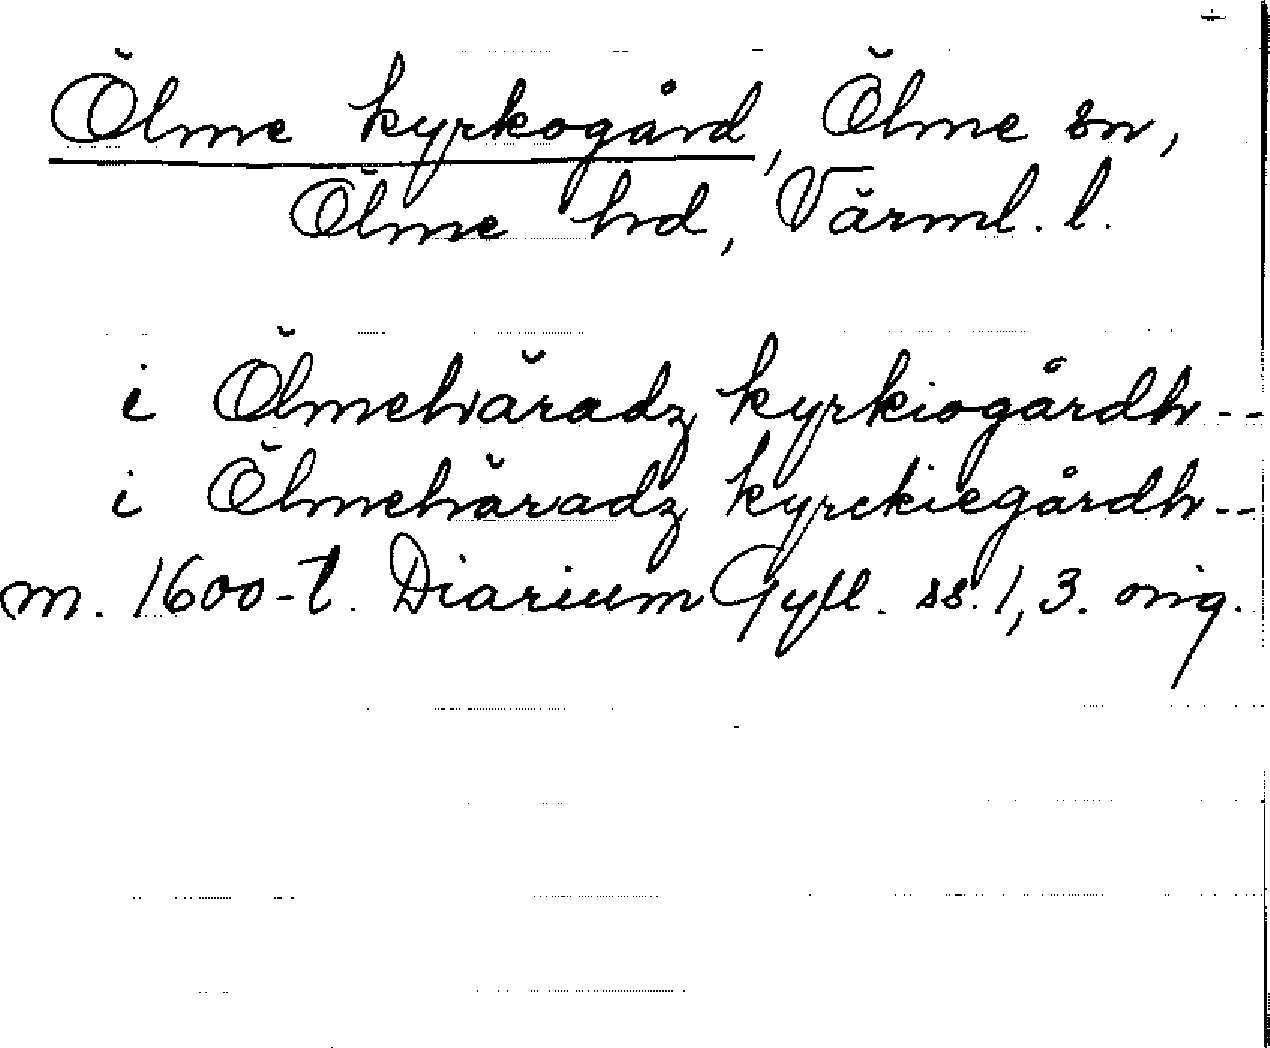 Ölme kyrkogård, Ölme sn,
Ölme hd, Värml. l.
i Ölmehäradz kyrkiogårdh--
i Ölmehäradz kyrckiegårdh--
m. 1600-t. Diarium Gyll. ss. 1, 3. orig.